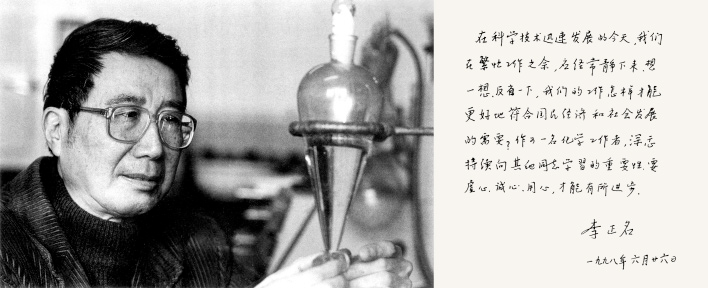 在科学技术迅速发展的今天,我们
在繁忙工作之余,应经常静下来,想
一想,反省一下,我们的工作怎样才能
更好地符合国民经济和社会发展
的需要?作为一名化学工作者,深感
持续向其他同志学习的重要性.要
虚心、诚心、用心,才能有所进步.
李正名
一九九八年六月廿六日